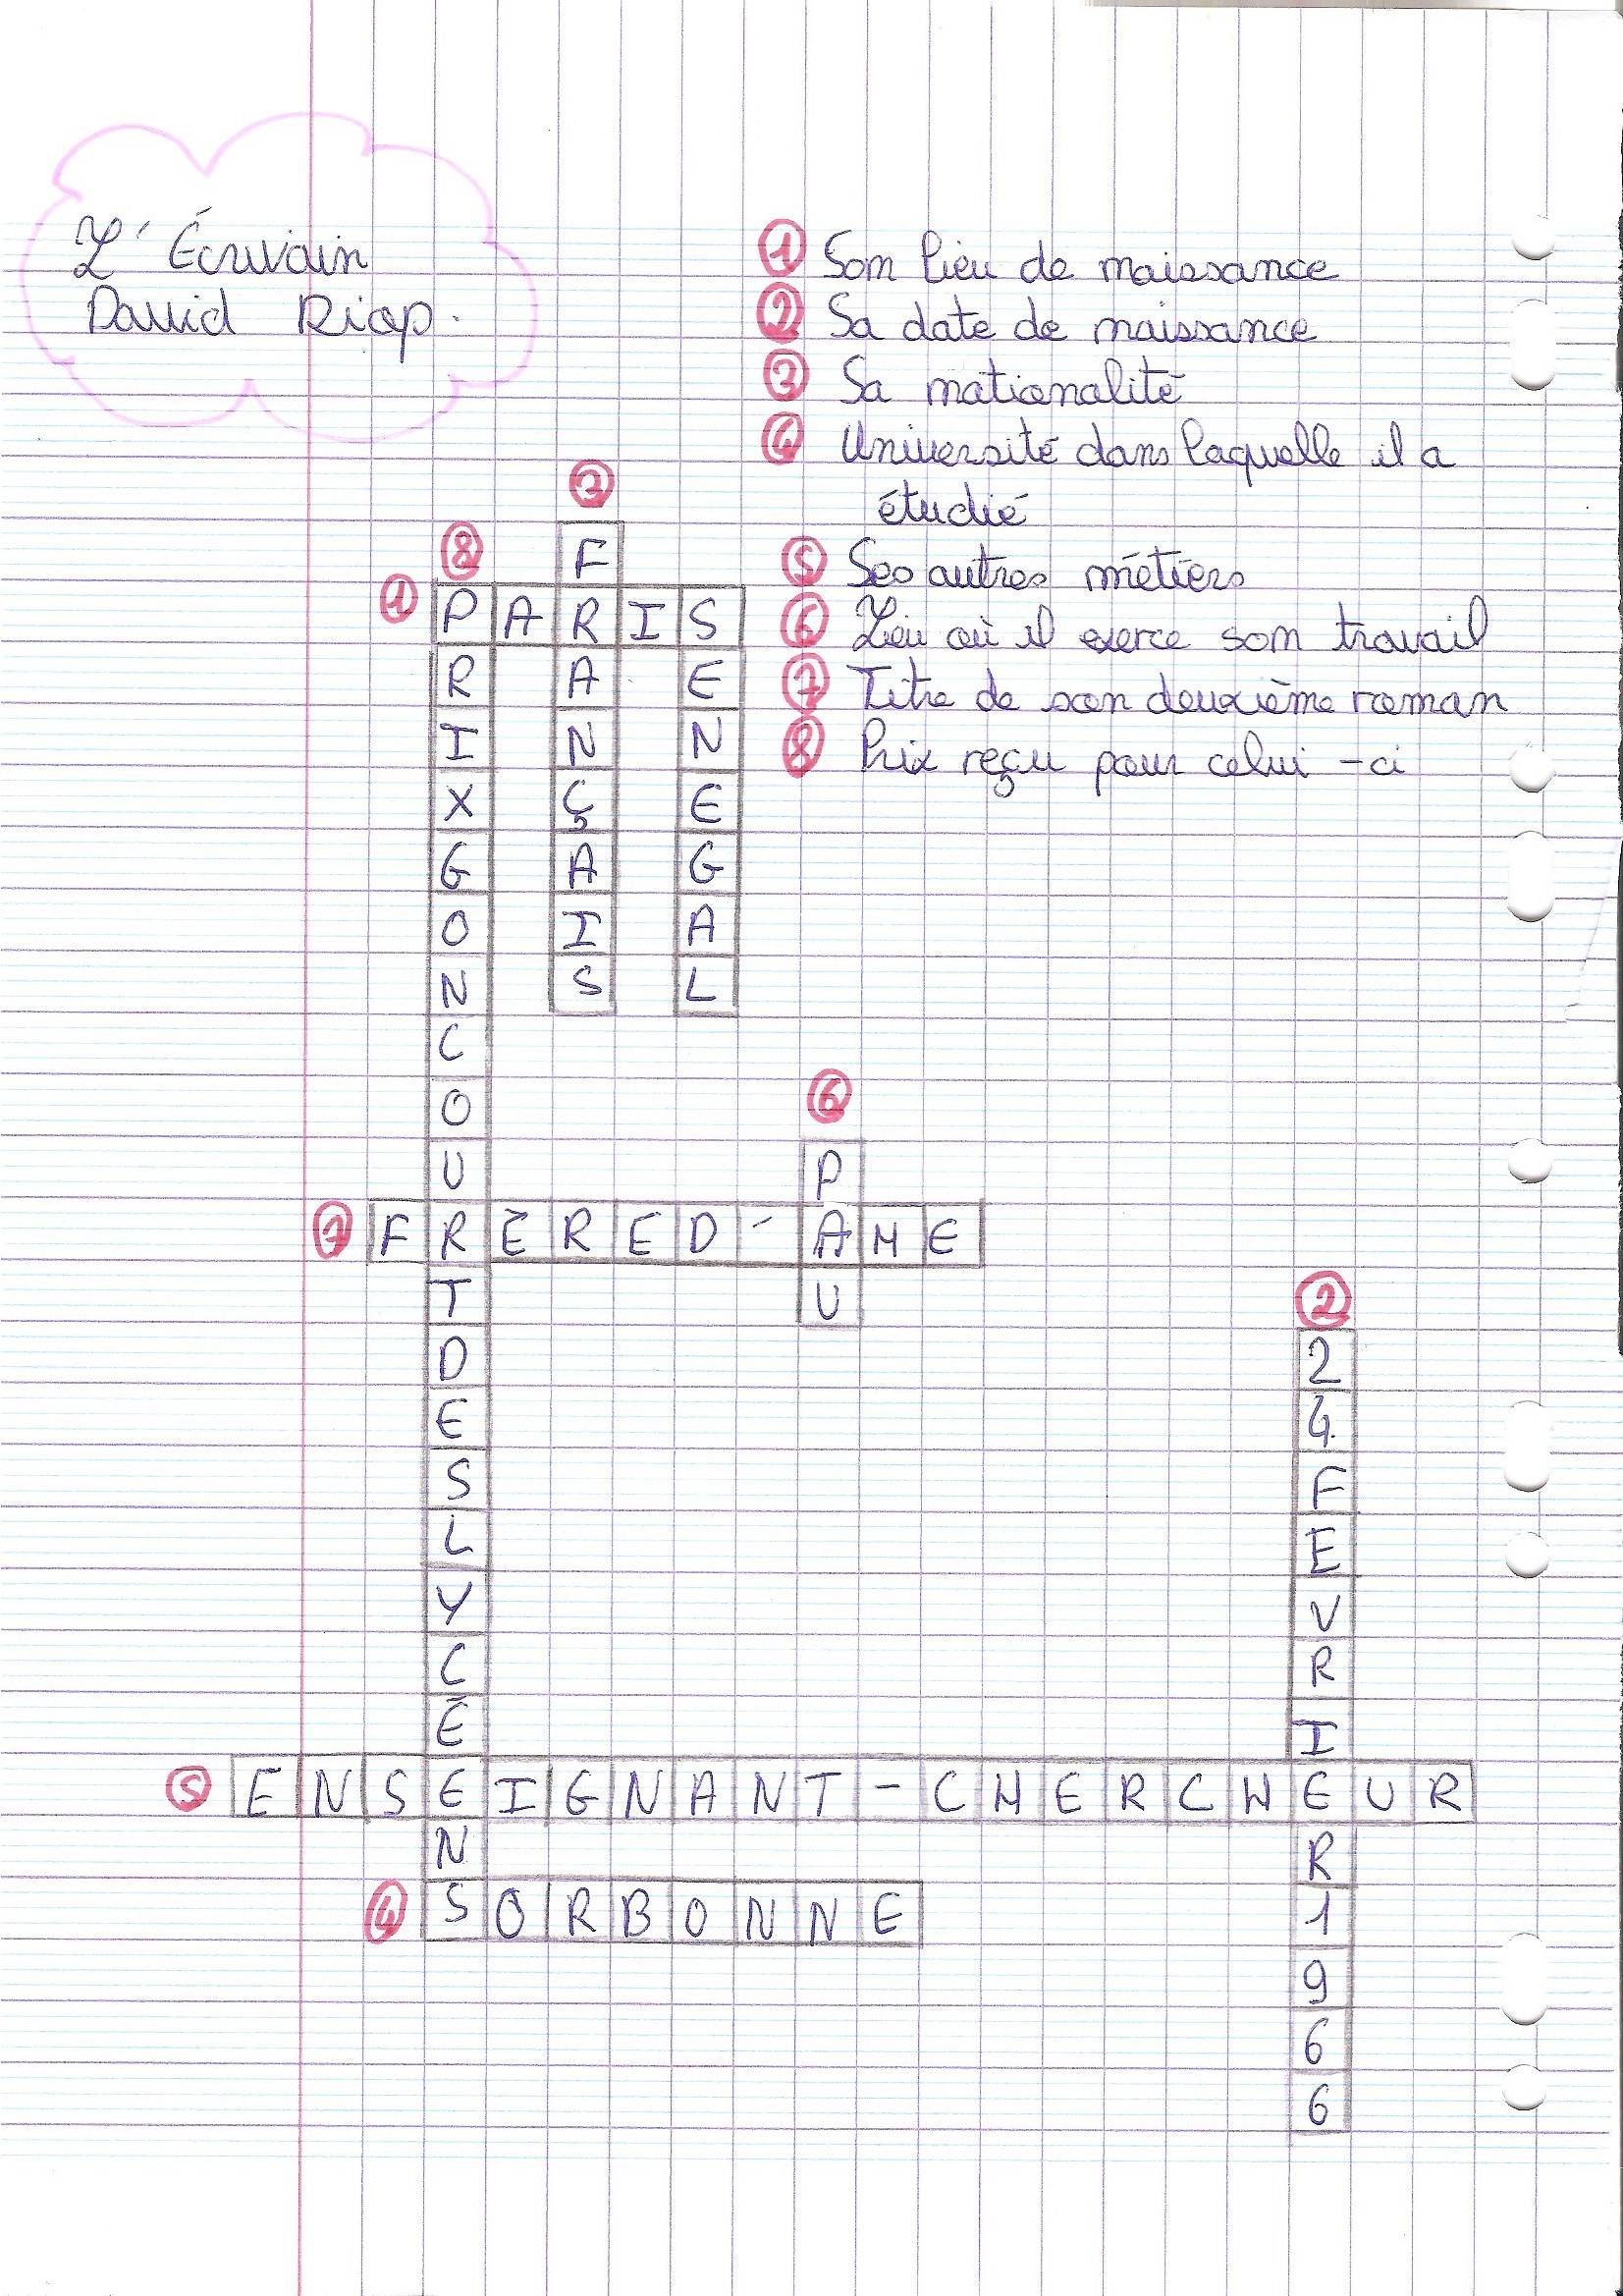 L'Écrivain
David Diop.
① Son lieu de naissance
② Sa date de naissance
③ Sa nationalité
④ Université dans laquelle il a
étudié
⑤ Ses autres métiers
⑥ Lieu où il exerce son travail
⑦ Titre de son deuxième roman
⑧ Prix reçu pour celui-ci
③ FRANÇAIS
⑧ PRIXGONCOURTDESLYCÉENS
① PARIS
SENEGAL
⑥ PAU
⑦ FRÈRED'AME
② 24FEVRIER1966
⑤ ENSEIGNANT-CHERCHEUR
④ SORBONNE